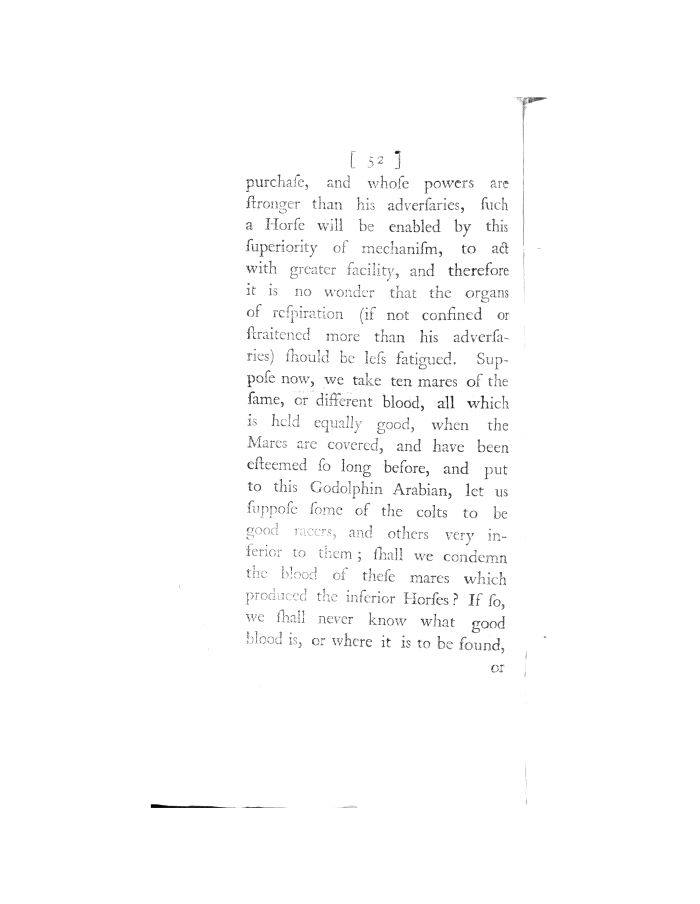 [ 52 ]
purchaſe, and whoſe powers are
ſtronger than his adverſaries, ſuch
a Horſe will be enabled by this
ſuperiority of mechaniſm, to act
with greater facility, and therefore
it is no wonder that the organs
of reſpiration (if not confined or
ſtraitened more than his adverſa-
ries) ſhould be leſs fatigued. Sup-
poſe now, we take ten mares of the
ſame, or different blood, all which
is held equally good, when the
Mares are covered, and have been
eſteemed ſo long before, and put
to this Godolphin Arabian, let us
ſuppoſe ſome of the colts to be
good racers, and others very in-
ferior to them ; ſhall we condemn
the blood of theſe mares which
produced the inferior Horſes ? If ſo,
we ſhall never know what good
blood is, or where it is to be found,
or